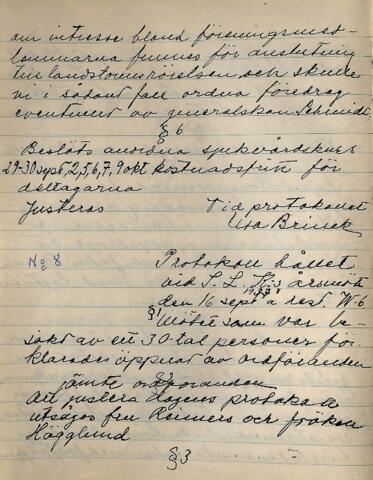 om intresse bland föreningsmed-
lemmarna finnes för anslutning
till landstormsrörelsen och skulle
vi i sådant fall ordna föredrag
eventuellt av generalskan Schmidt
§ 6
Beslöts anordna sjukvårdskurs
29-30 sept, 2, 5, 6, 7, 9 okt kostnadsfritt för
deltagarna
Justeras Vid protokollet
Brinck
No 8 Protokoll hållet
vid S. L. K:s årsmöte
den 16 sept å rest. W-6
§1 Mötet som var be-
sökt av ett 30-tal personer för-
klarades öppnat av ordföranden
§2
jämte ordföranden
Att justera dagens protokoll
utsågos fru Reimers och fröken
Hägglund
§ 3